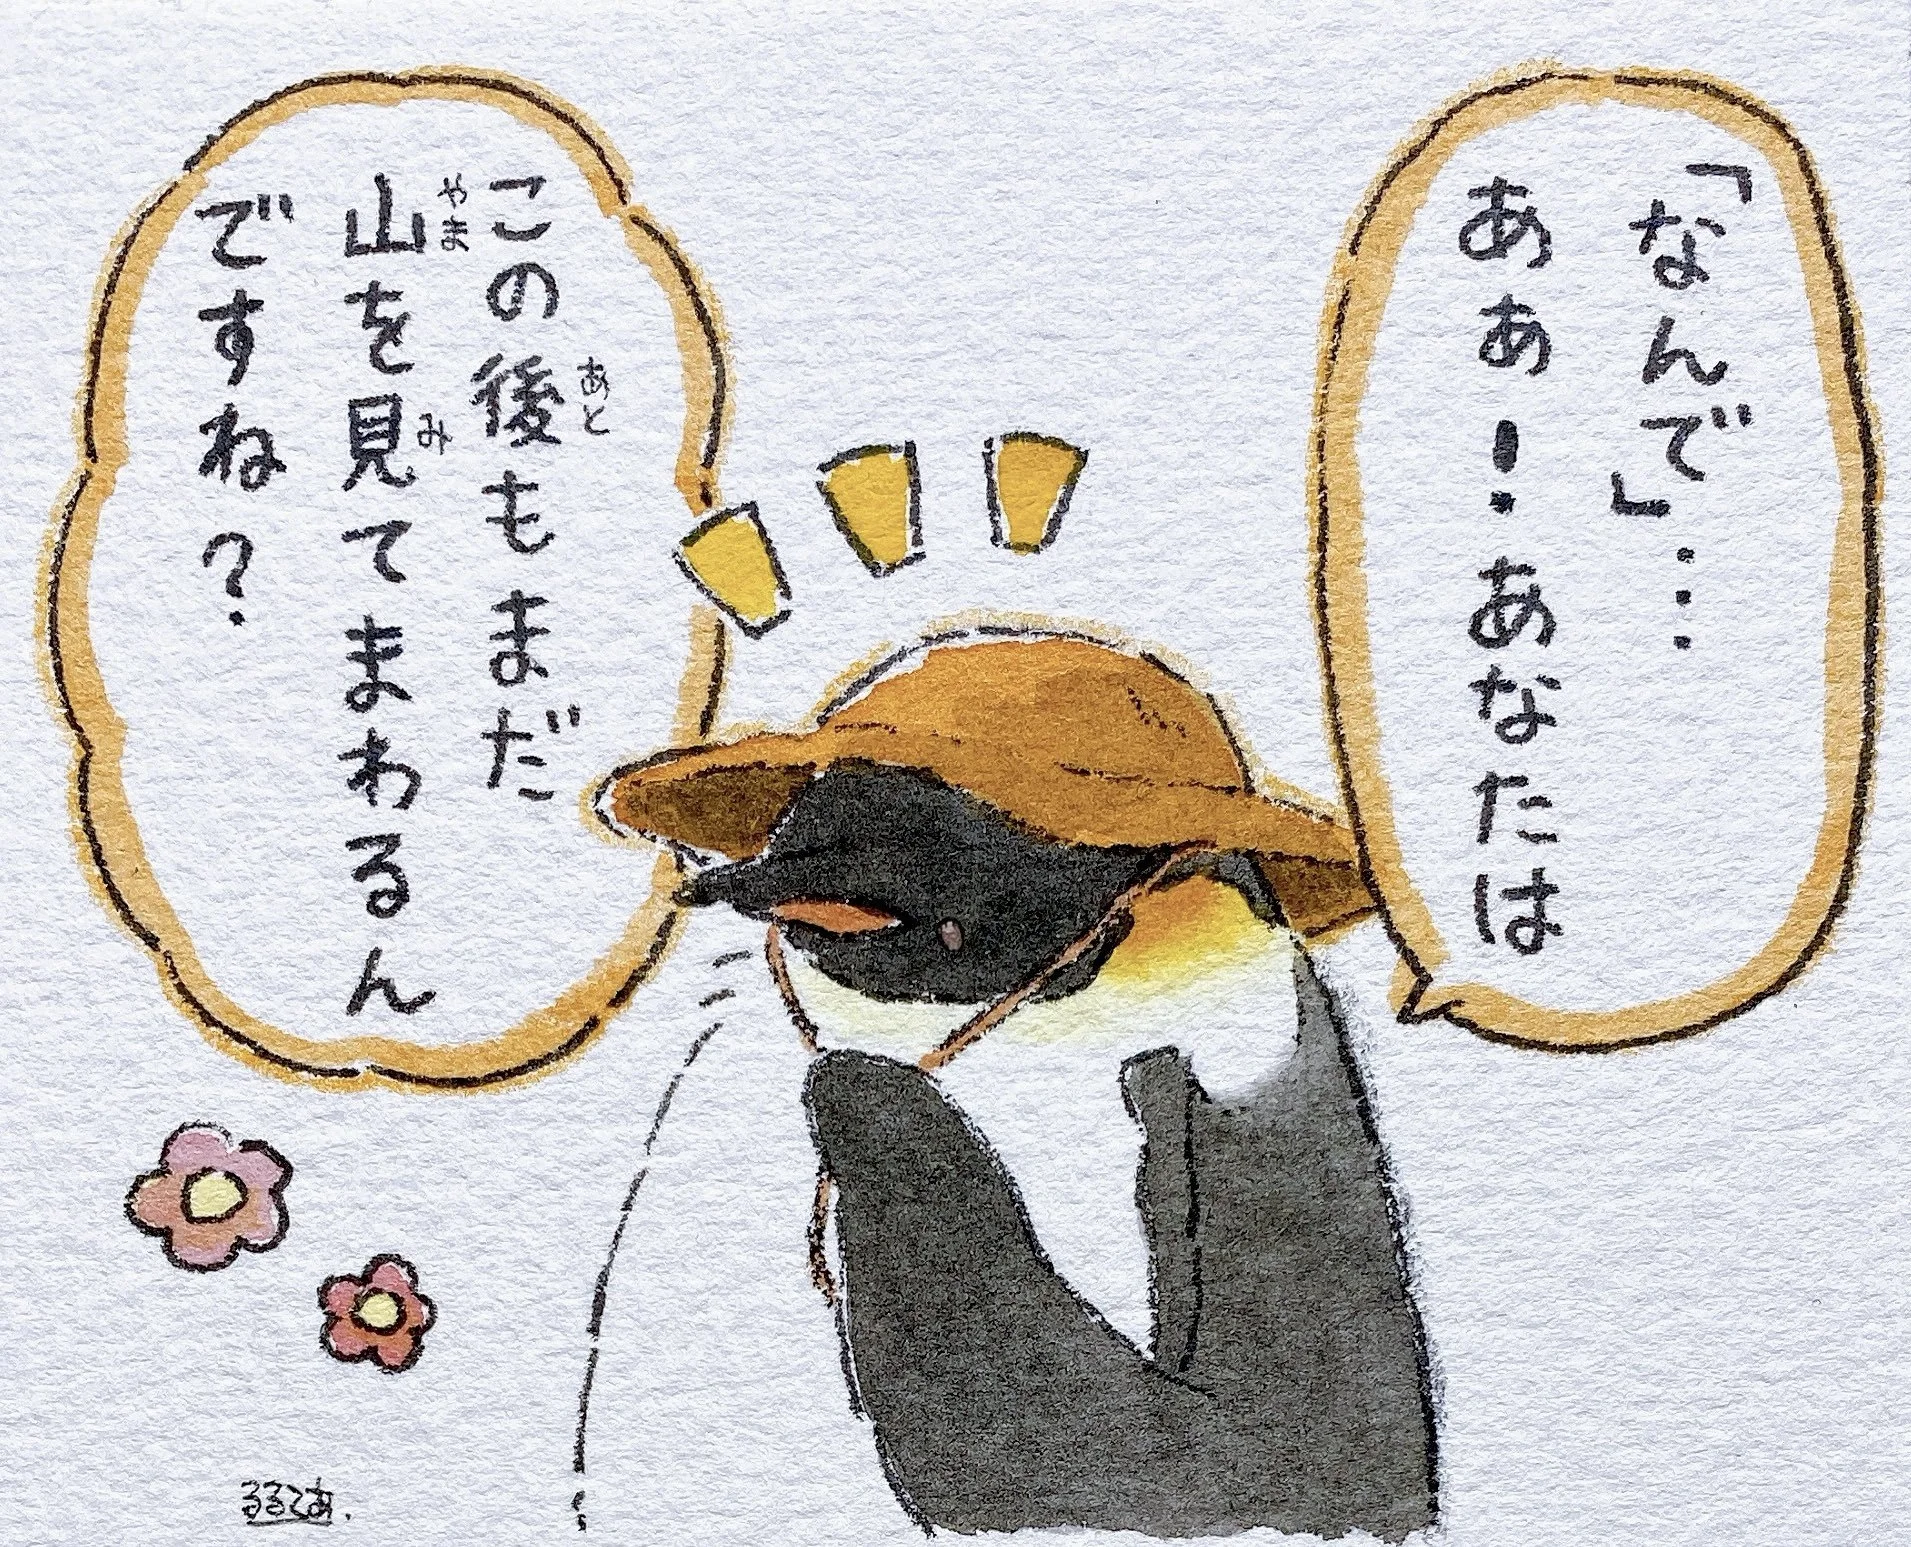 「なんで」……
ああ！あなたは
この後もまだ
あと
山を見てまわるん
やま
み
ですね？
るるてあ.